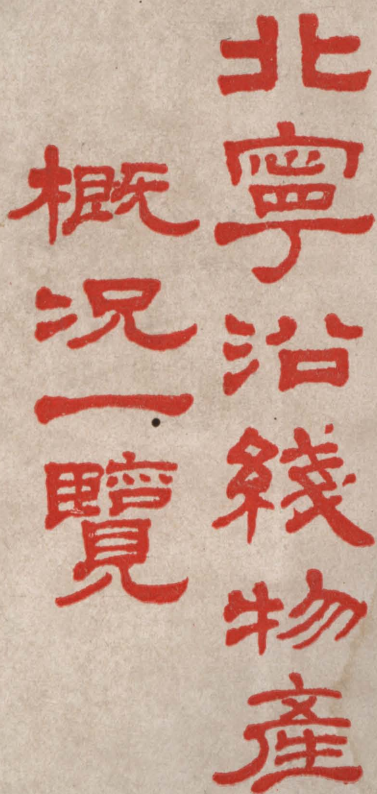 北寧沿綫物產
概况一覽